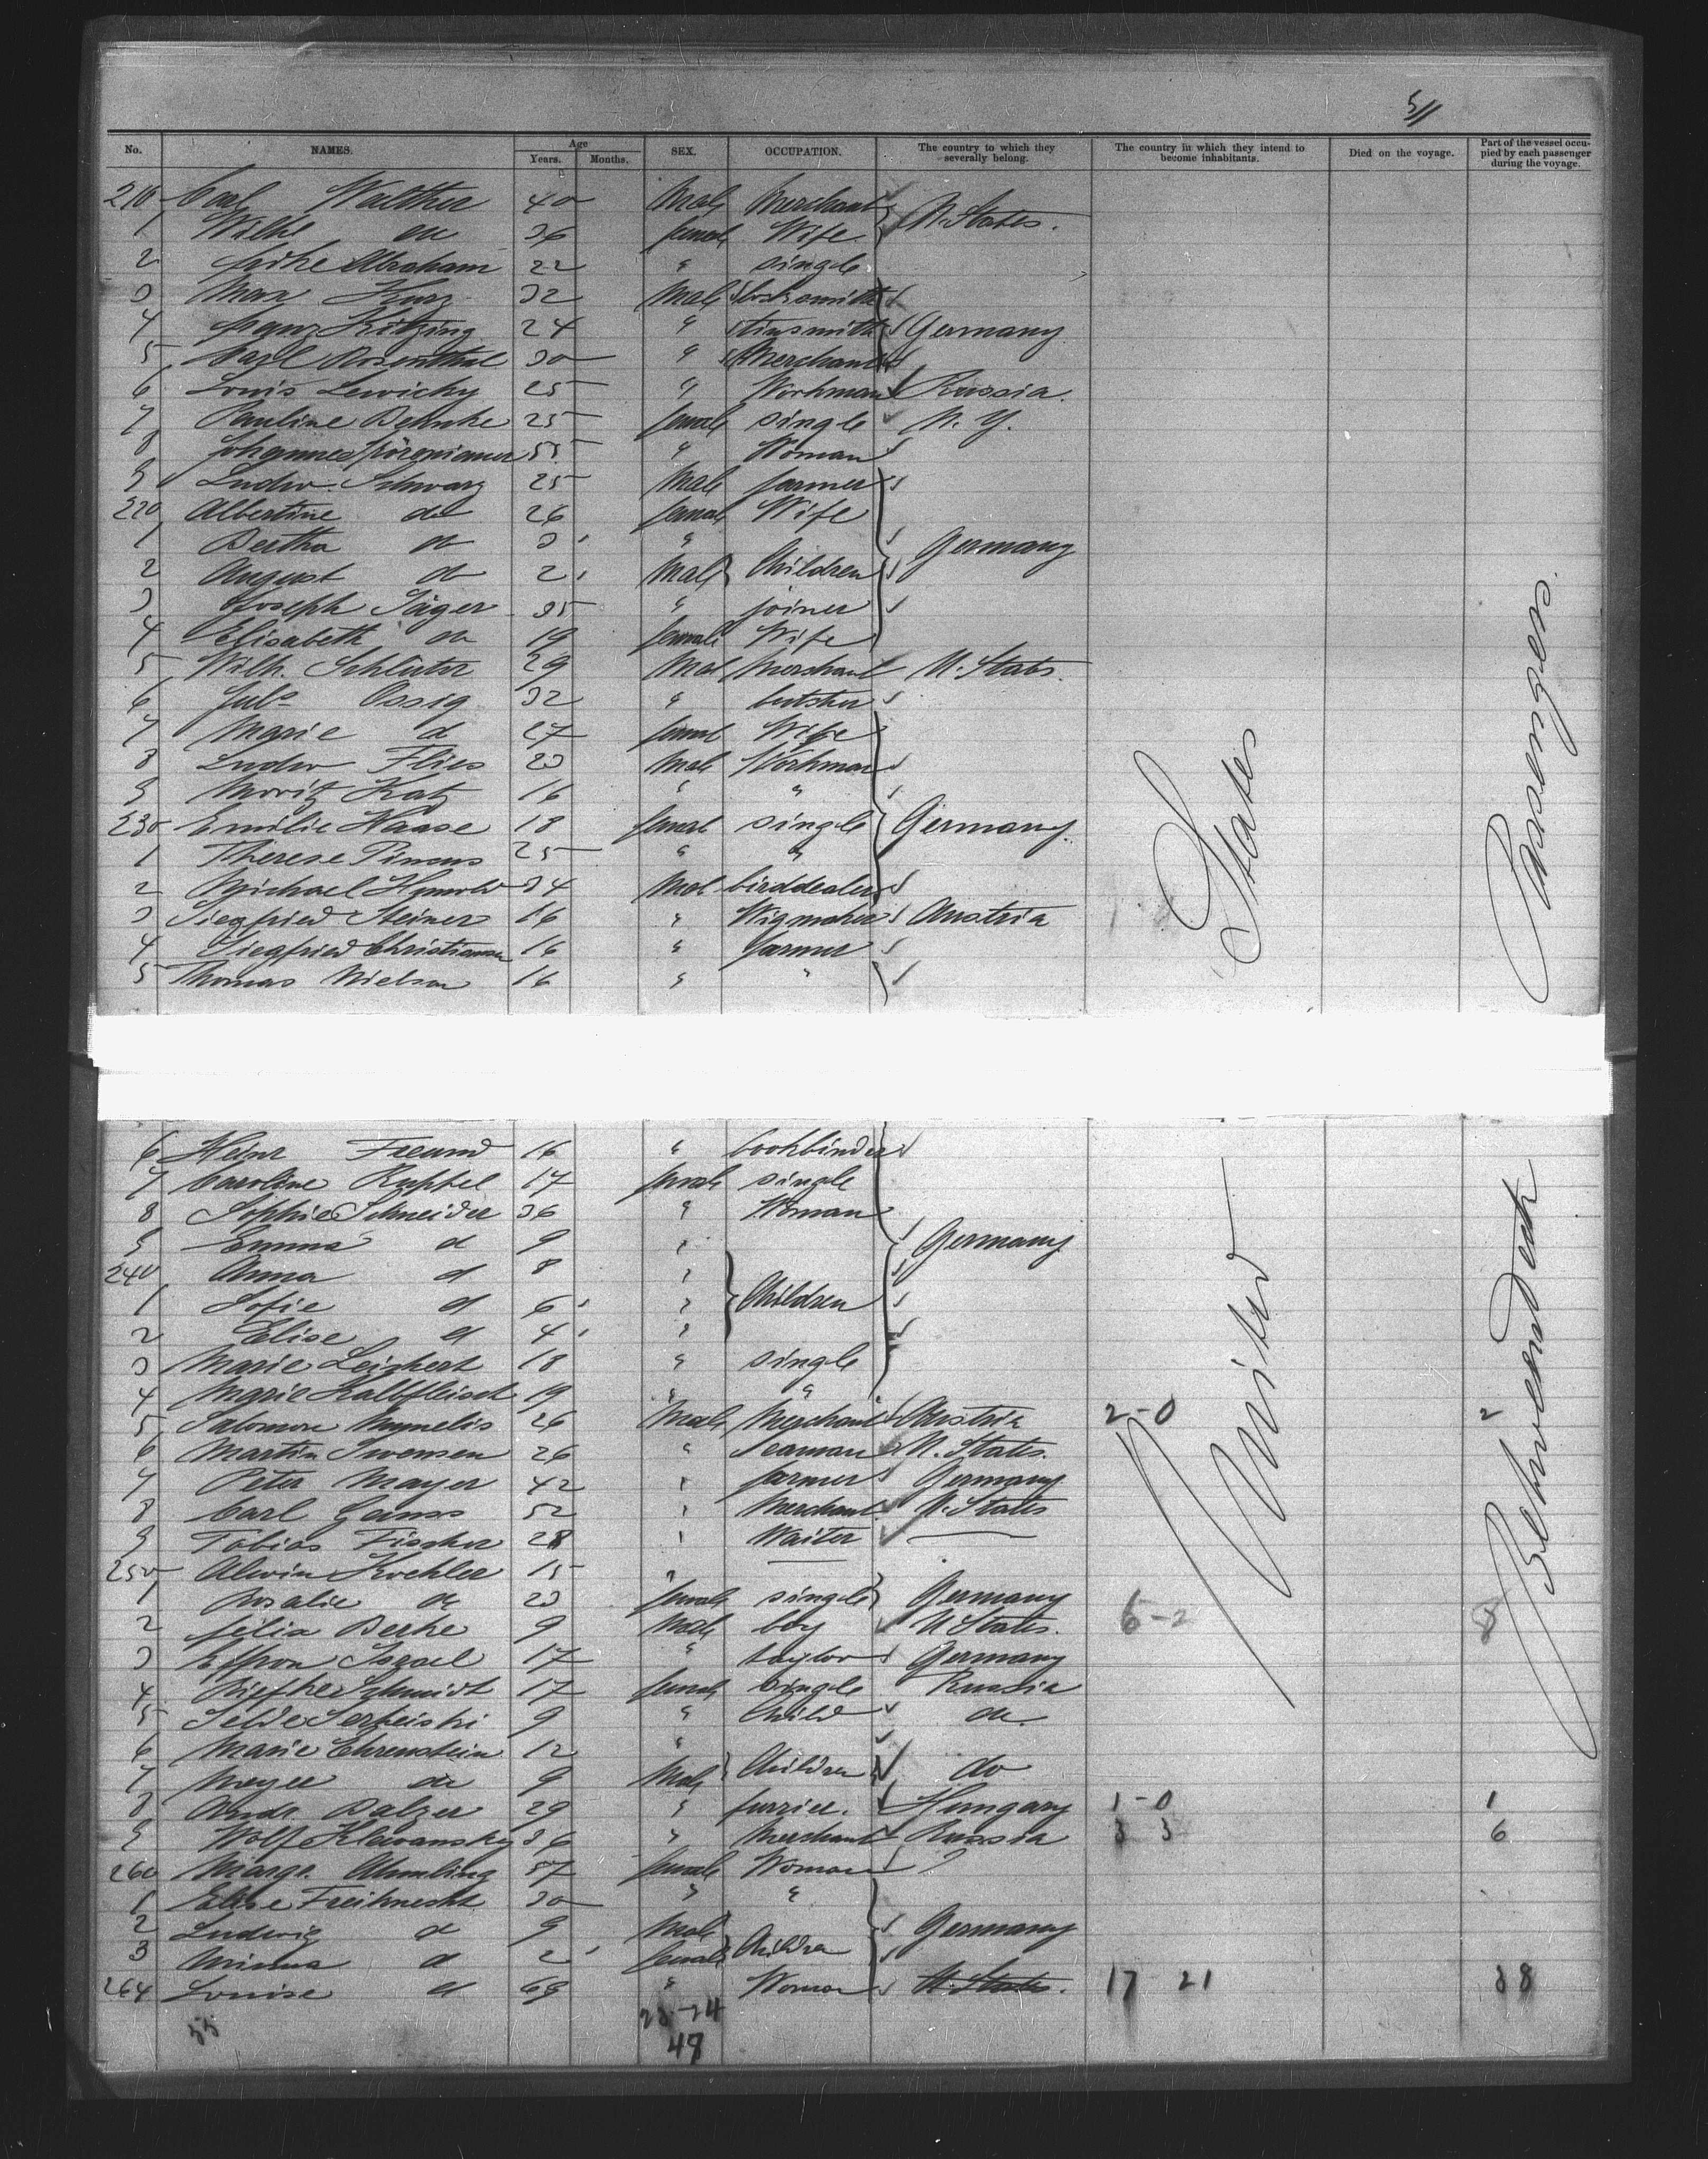 511
No. NAMES. Age Years. Months. SEX. OCCUPATION. The country to which they severally belong. The country in which they intend to become inhabitants. Died on the voyage. Part of the vessel occupied by each passenger during the voyage.
210 Carl Walther 40 Male Merchant U. States.
1 Wilhe do 36 female Wife
2 Abraham 22 " single
3 Max Kurz 32 Male locksmith
4 Franz Kitzing 24 " tinsmith Germany
5 Carl Rosenthal 30 " Merchant
6 Louis Lewicky 25 " Workman Russia.
7 Pauline Behnke 25 female single N. Y.
8 Johannes 55 " Woman
9 Ludw. Schwarz 25 Male farmer
220 Albertine do 26 female Wife
1 Bertha do 3 " Germany
2 August do 2 Male Children
3 Joseph Jäger 35 " joiner
4 Elisabeth do 19 female Wife
5 Wilh. Schlüter 29 Male Merchant U. States.
6 Juls Ossig 32 "
7 Marie d 27 female Wife
8 Ludw Flies 23 Male Workman
9 Moritz Katz 16 " "
230 Emilie Haase 18 female single Germany.
1 Therese Pincus 25 " "
2 Michael 34 Male birddealer
3 Siegfried Steiner 16 " Wigmaker Austria
4 Siegfried Christiansen 16 " farmer
5 Thomas Nielsen 16 " "
6 Heinr Freund 16 " bookbinder
7 Caroline Ruppel 17 female single
8 Sophie Schneider 36 " Woman
9 Emma d 9 " Germany
240 Anna d 8 "
1 Sofie d 6 " Children
2 Elise d 4 "
3 Marie Leichert 18 " single
4 Marie Kalbfleisch 19 " "
5 Salomon 26 Male Merchant Austria 2-0 2
6 Martin Swensen 26 " Seaman U. States.
7 Peter Mayer 42 " farmer Germany
8 Carl Ganss 52 " Merchant U. States
9 Tobias Fischer 28 " Waiter —
250 Alwin Koehler 15 " —
1 Rosalie do 23 female single Germany
2 Felix Berke 9 Male boy U States. 6-2 8
3 Israel 17 " taylor Germany
4 Schmidt 17 female single Russia
5 9 " Child do
6 Marie Ehrenstein 12 "
7 Meyer do 9 Male Children do
8 Andr. Balzer 29 " furrier. Hungary 1-0 1
9 Wolf Klawansky 36 " Merchant Russia 3 3 6
260 Margr. 57 female Woman ?
1 Elise Freiknecht 30 " "
2 Ludwig d 9 Male Germany
3 Minna d 2 female Children
264 Louise d 69 " Woman U. States. 17 21 38
55
23-24
48
United States
Betweendeck Passengers.